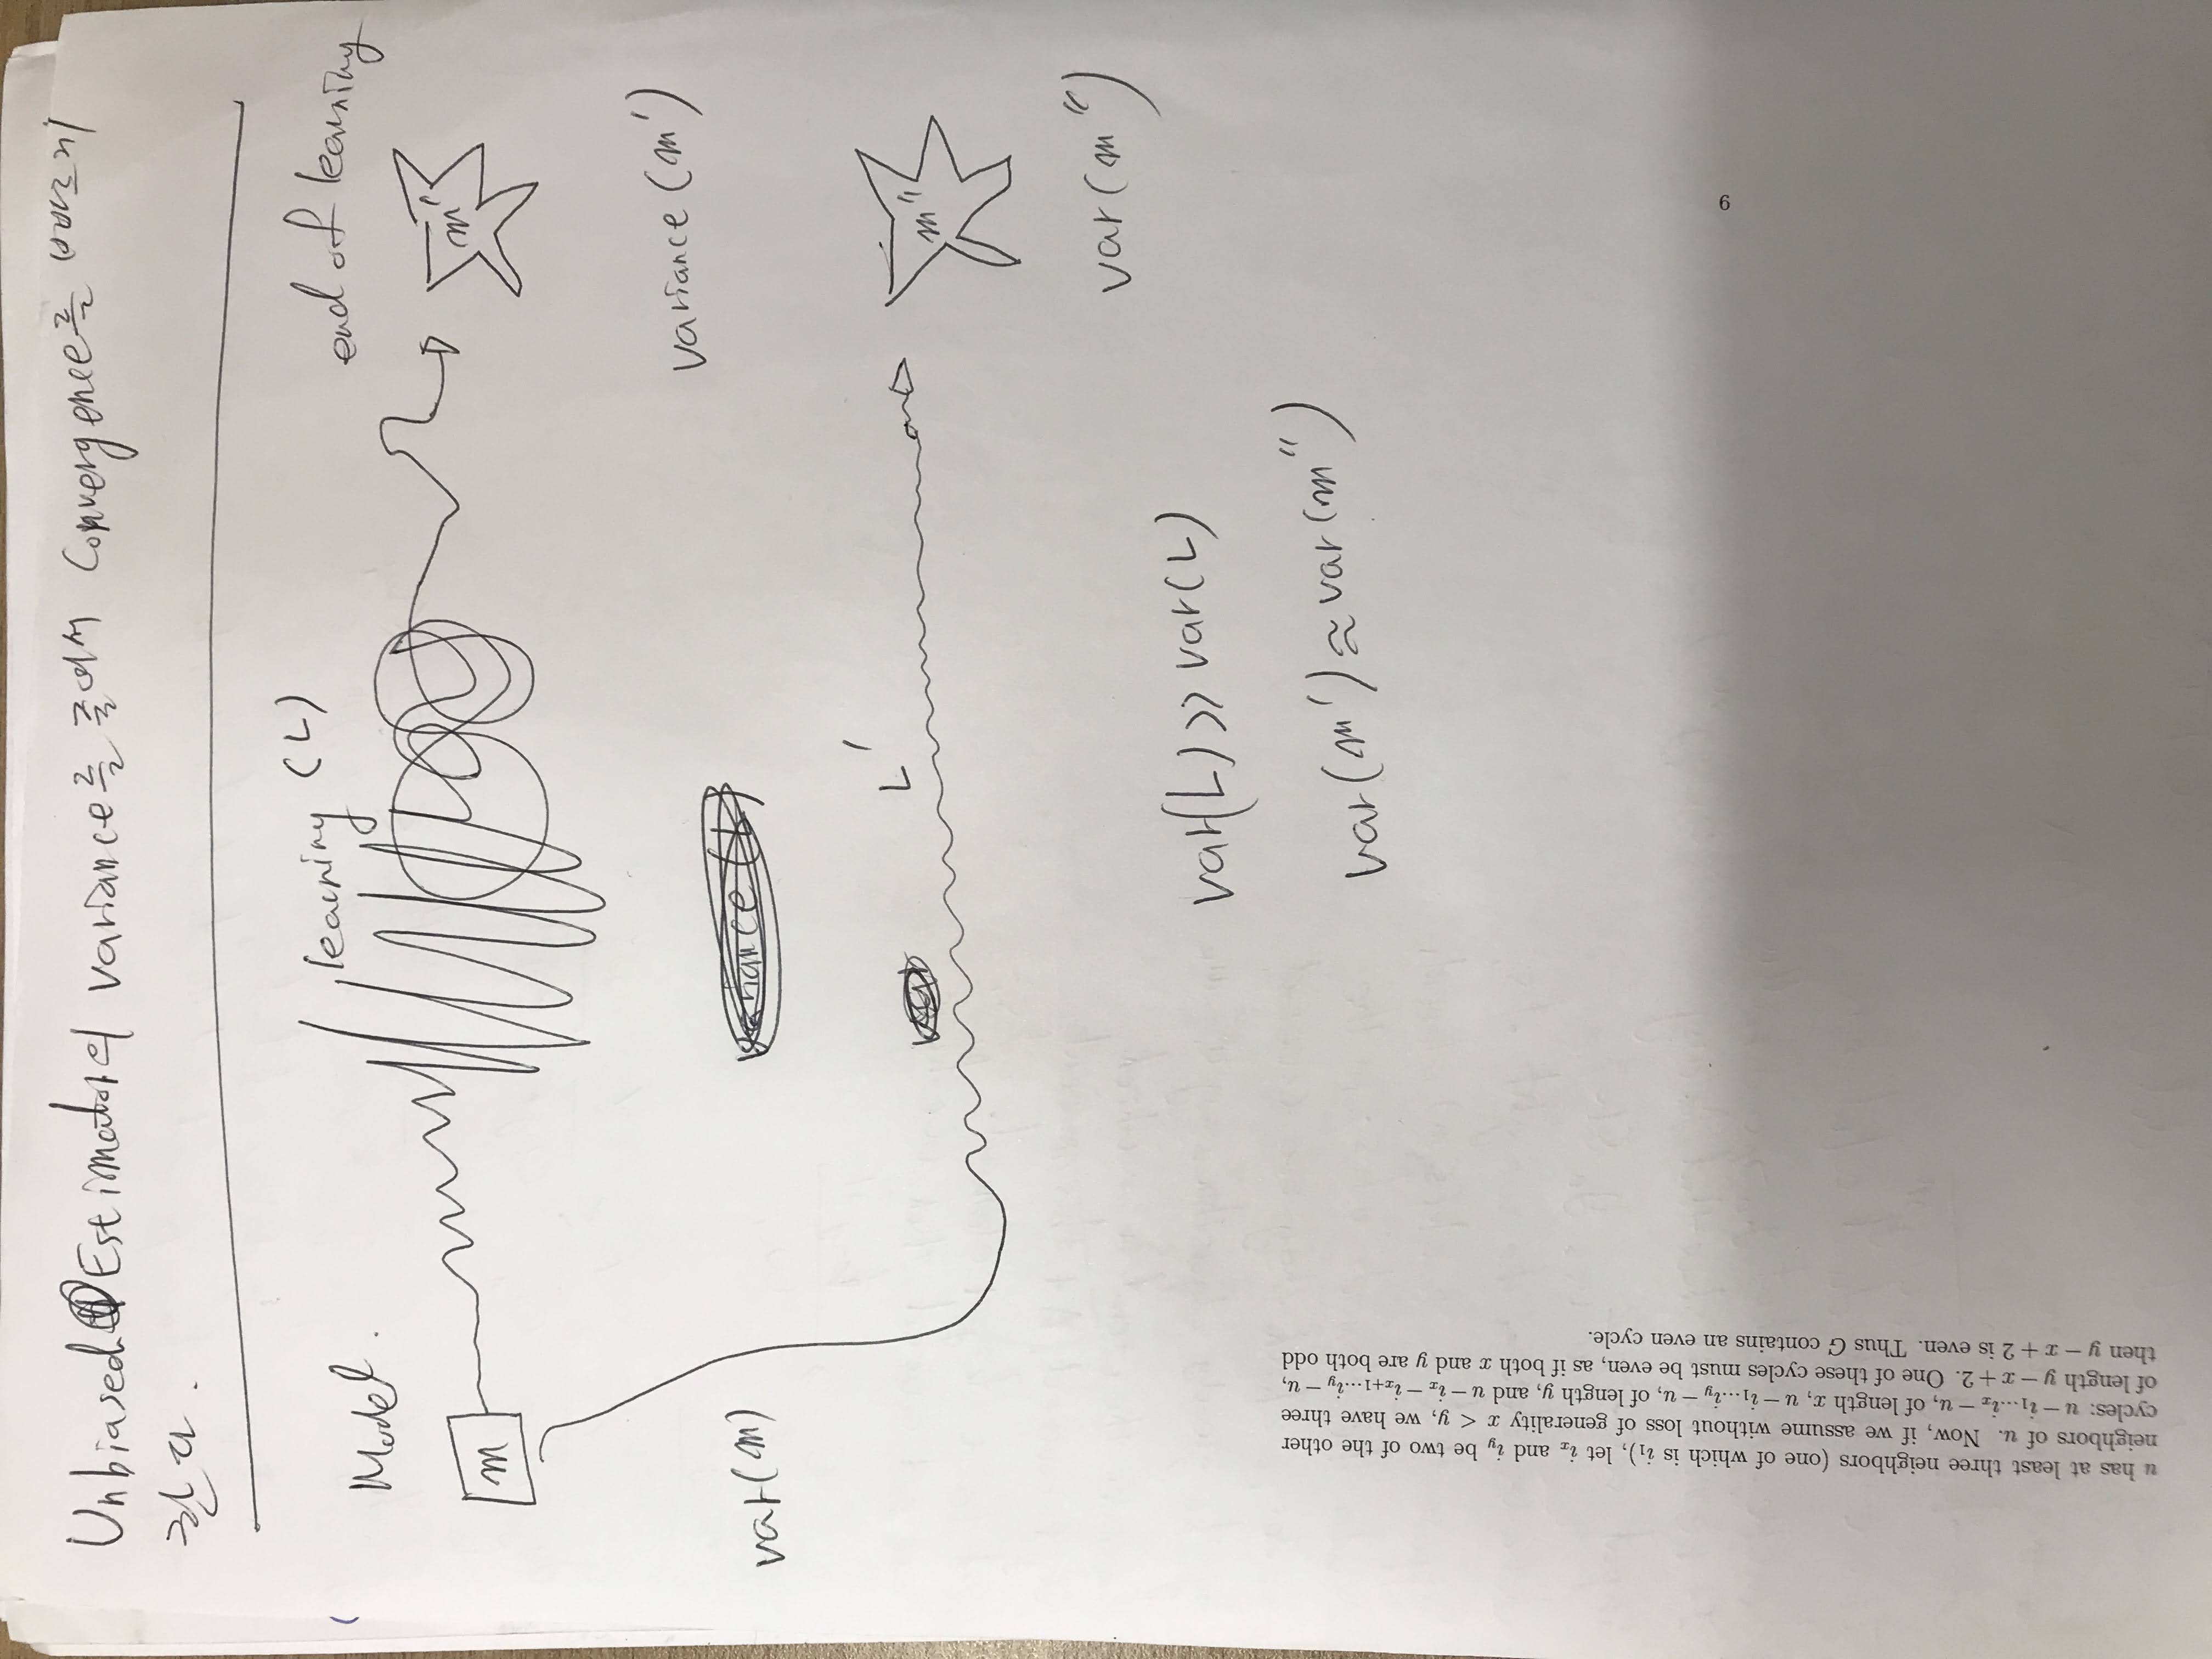 Unbiased Estimator의 variance를 줄여서 Convergence를 빠르게
한다.
learning (L)
end of learning
Model.
m
m'
variance (m')
var(m)
variance (L)
L'
var
m"
var(m")
var(L) >> var(L)
var(m') ≈ var(m")
u has at least three neighbors (one of which is i₁), let iₓ and i_y be two of the other
neighbors of u. Now, if we assume without loss of generality x < y, we have three
cycles: u − i₁...iₓ − u, of length x, u − i₁...i_y − u, of length y, and u − iₓ − iₓ₊₁...i_y − u,
of length y − x + 2. One of these cycles must be even, as if both x and y are both odd
then y − x + 2 is even. Thus G contains an even cycle.
9